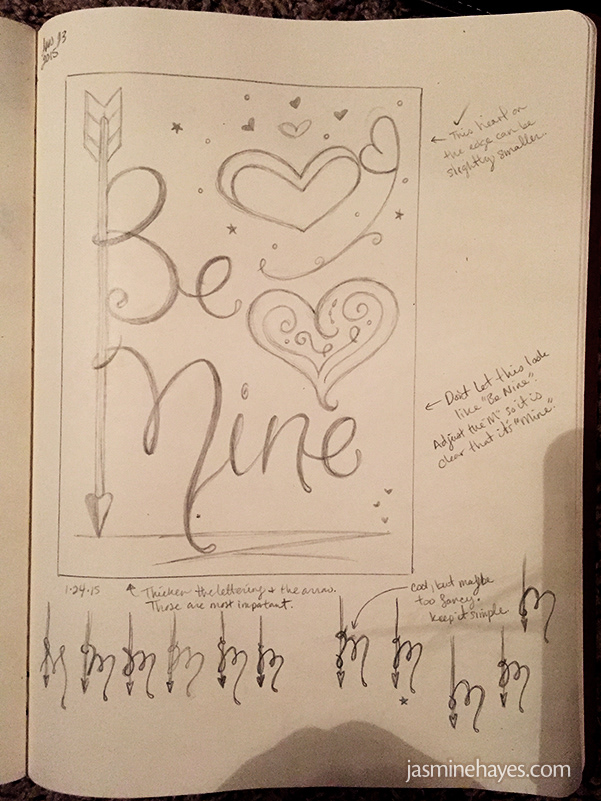 Jan 23
2015
← This heart on
the edge can be
slightly smaller.
Be
Mine
← Don't let this look
like "Be Nine".
Adjust the "M" so it is
clear that it's "Mine."
1-24-15
Thicken the lettering & the arrow.
Those are most important.
cool, but maybe
too fancy.
keep it simple
jasminehayes.com